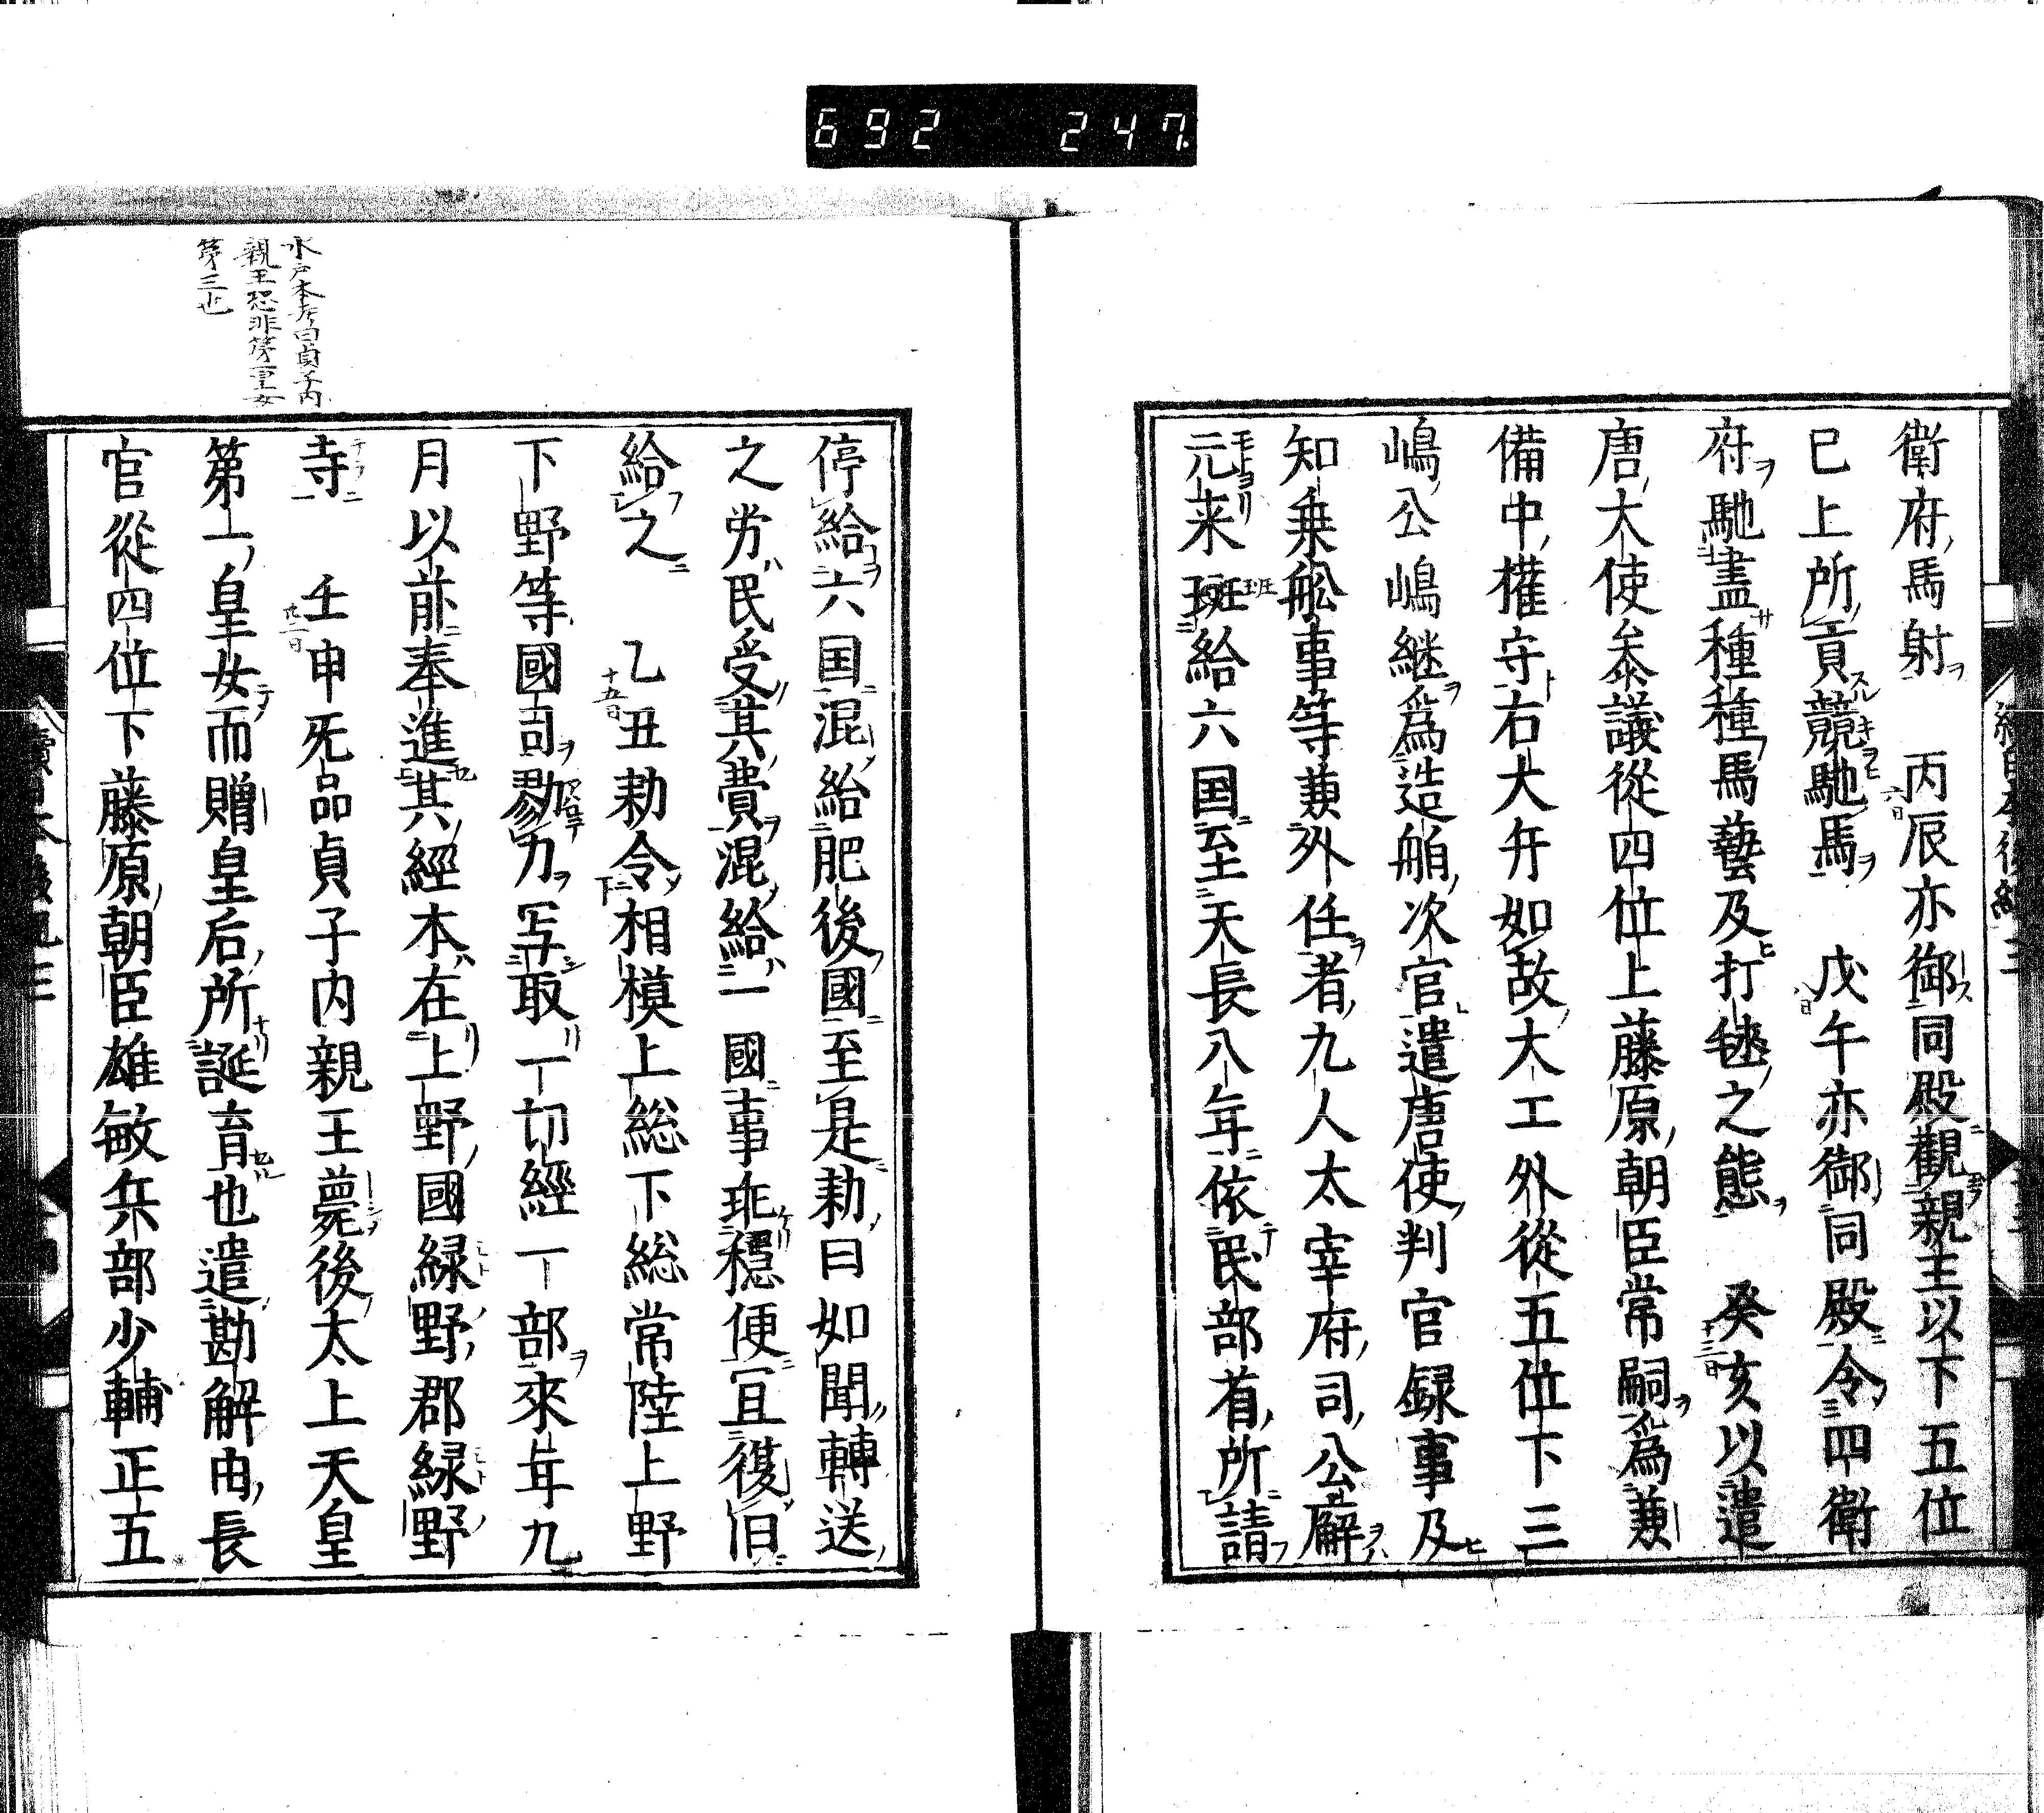 692 247
衛府馬射 丙辰亦御同殿觀親王以下五位
已上所貢競馳馬 戊午亦御同殿令四衛
府馳盡種種馬藝及打毬之態 癸亥以遣
唐大使叅議從四位上藤原朝臣常嗣爲兼
備中權守右大弁如故大工外從五位下三
嶋公嶋継爲造舶次官遣唐使判官録事及
知乗舩事等兼外任者九人太宰府司公廨
元来班給六国至天長八年依民部省所請
停給六国混給肥後國至是勅曰如聞轉送
之労民受其費混給一國事乖穩便冝復旧
給之 乙丑勅令相模上総下総常陸上野
下野等國司勠力写取一切經一部來年九
月以前奉進其經本在上野國緑野郡緑野
寺 壬申旡品貞子内親王薨後太上天皇
第一皇女而贈皇后所誕育也遣勘解由長
官從四位下藤原朝臣雄敏兵部少輔正五
水戸本考曰貞子内
親王恐非第一皇女
第三也